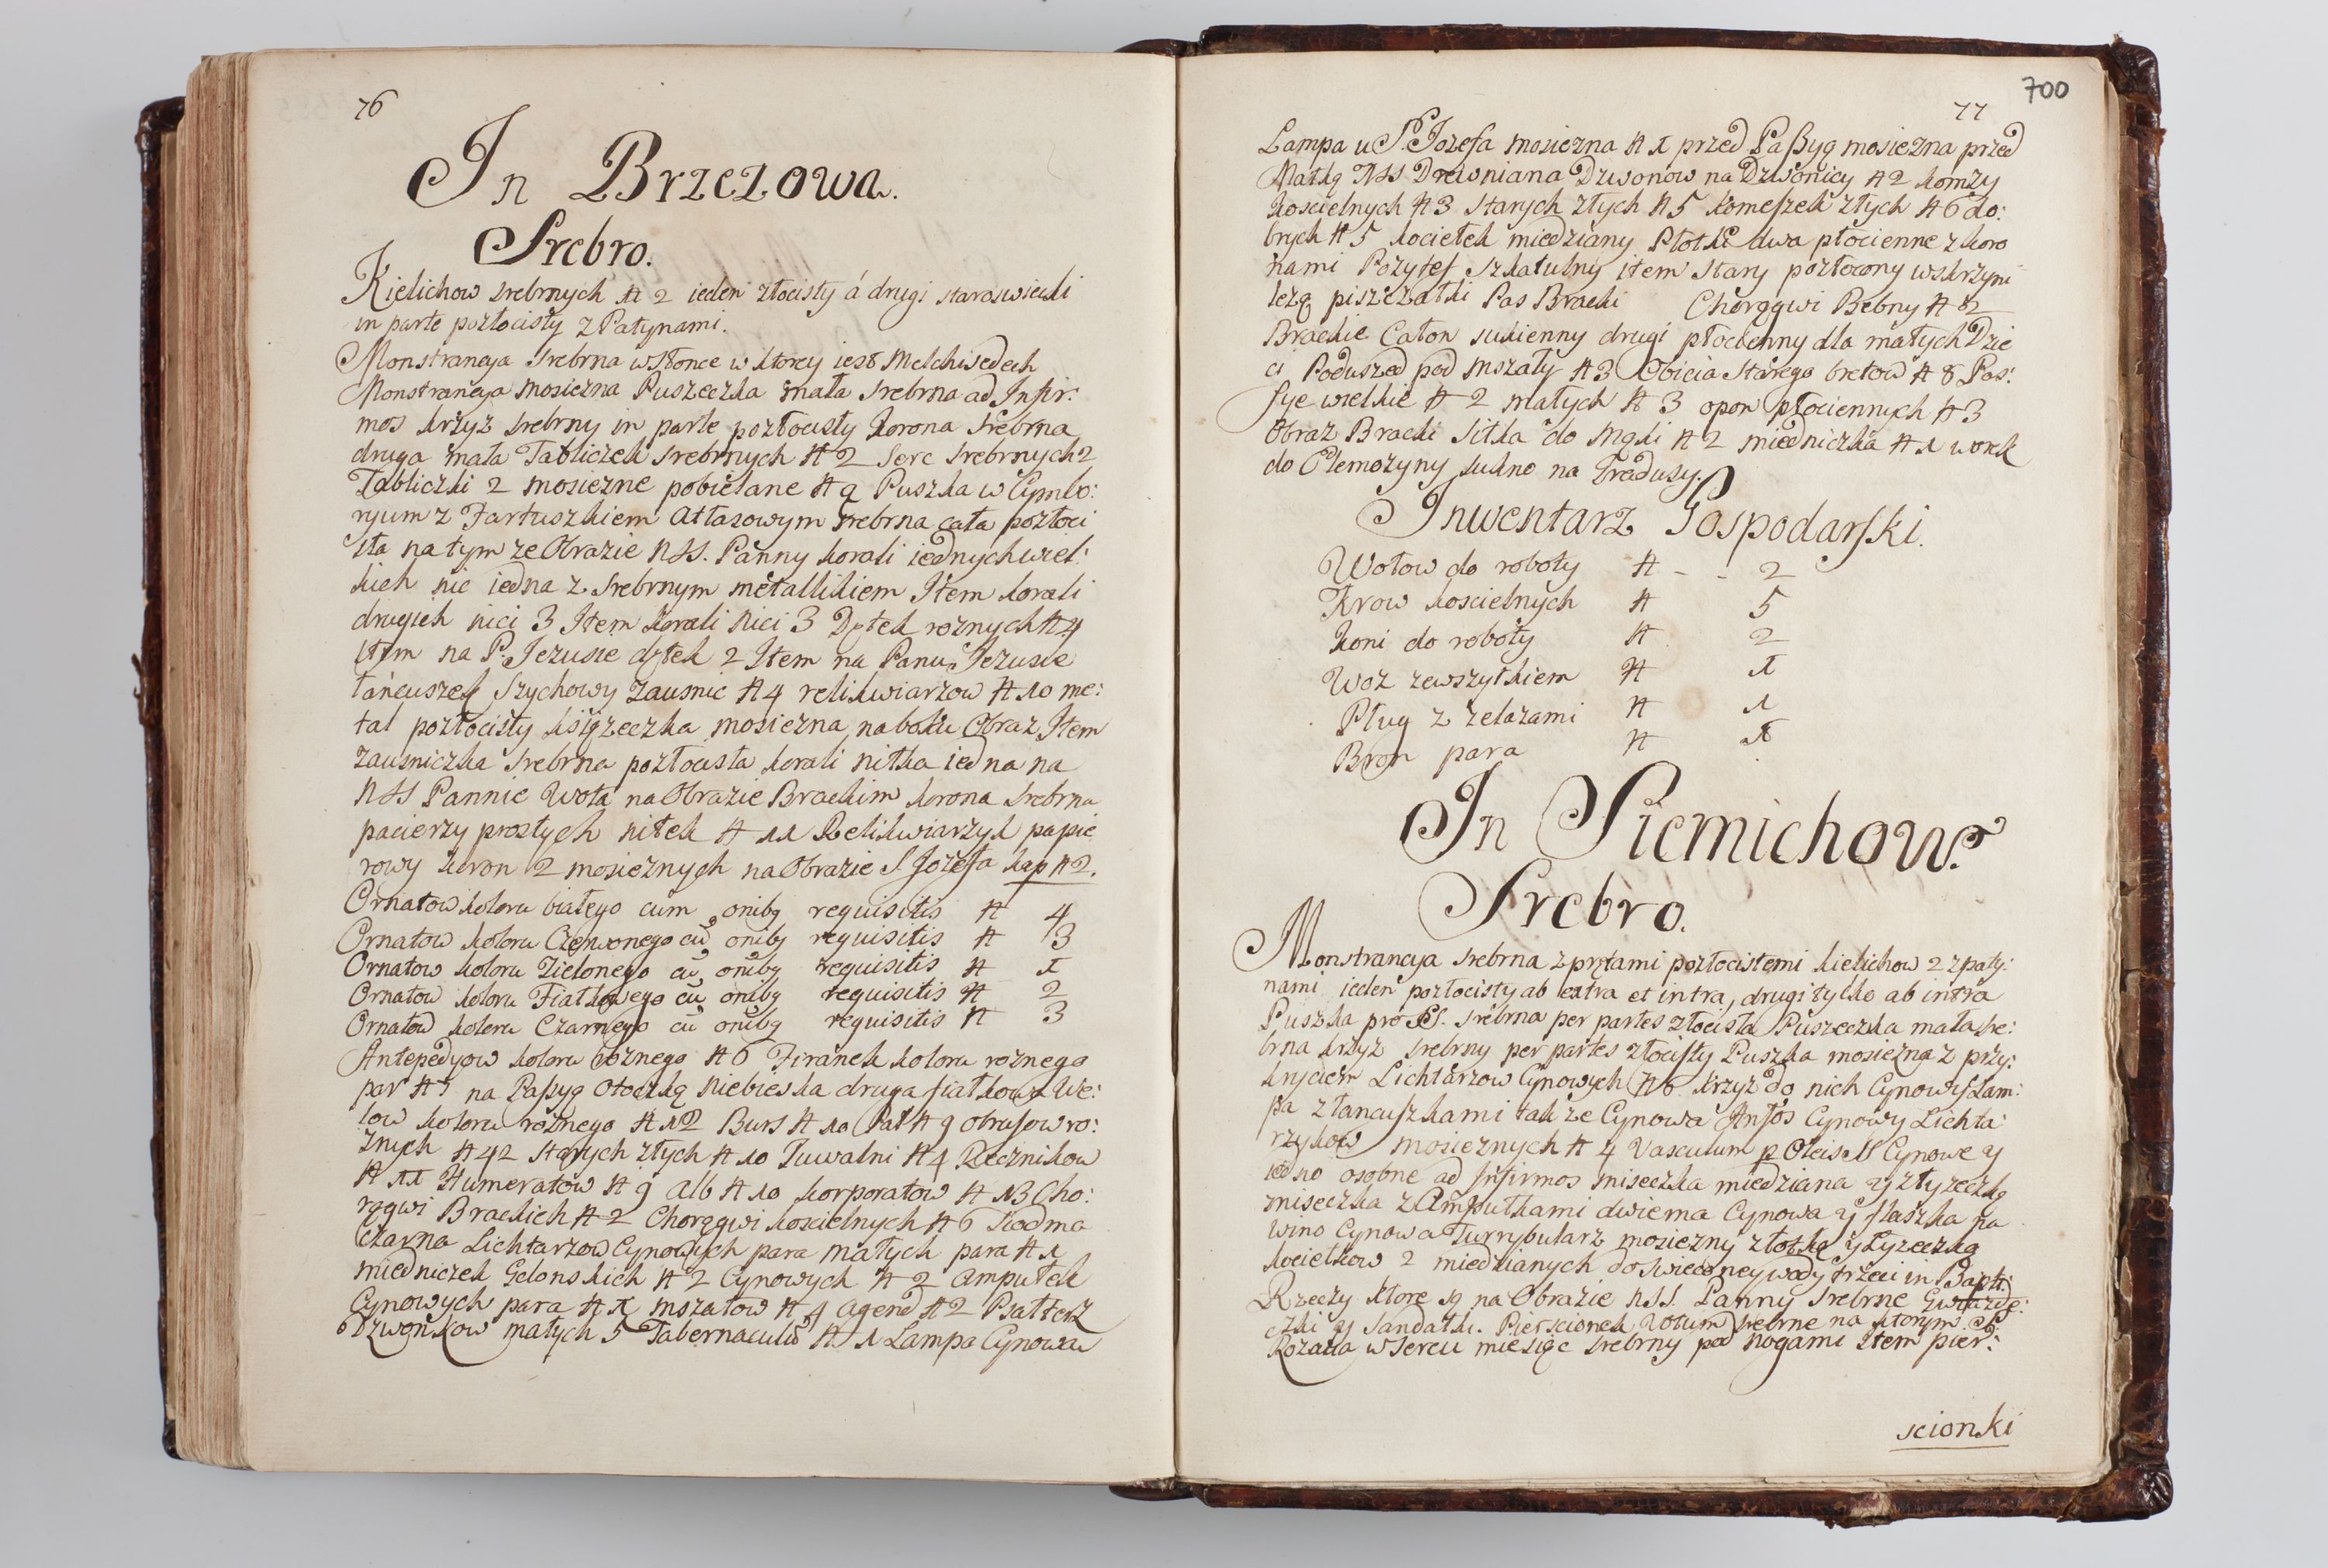 76
In Brzezowa.
Srebro.
Kielichow srebrnych № 2 ieden złocisty á drugi staroswiecki
in parte pozłocisty z Patynami.
Monstrancya srebrna w słonce w ktorey iest Melchisedech
Monstrancya mosiezna Puszeczka mała srebrna ad Infir:
mos krzyz srebrny in parte pozłocisty korona srebrna
druga mała Tabliczek srebrnych № 2 Serc srebrnych 2
Tabliczki 2 mosiezne pobielane № 2 Puszka w Cymbo:
ryum z Fartuszkiem Atłasowym srebrna cała pozłoci
sta na tym ze Obrazie NSS. Panny korali iednych wiel:
kich nic iedna z srebrnym metallikiem Item korali
drugich nici 3 Item korali Nici 3 Dętek roznych № 4
Item na P. Jezusie dętek 2 Item na Panu Jezusie
łańcuszek Szychowy Zausnic № 4 relikwiarzow № 10 me:
tal pozłocisty ksiązeczka mosiezna na boku Obraz Item
zauszniczka srebrna pozłocista korali nitka iedna na
NSS Pannie Wota na Obrazie Brackim korona srebrna
pacierzy prostych nitek № 11 Relikwiarzyk papie
rowy koron 2 mosieznych na Obrazie S. Jozefa kap № 2.
Ornatow koloru białego cum onibq requisitis № 4
Ornatow koloru Czerwonego cū onibq requisitis № 3
Ornatow koloru Zielonego cū onibq requisitis № 1
Ornatow koloru Fiałkowego cū onibq requisitis № 2
Ornatow koloru Czarnego cū onibq requisitis № 3
Antepedyow koloru roznego № 6 Firanek koloru roznego
par № 5 na Paßyą Otoczką niebieska druga fiałkowa We:
low koloru roznego № 12 Burs № 10 Pal № 9 obrusow ro:
znych № 42 starych złych № 10 Tuwalni № 4 Recznikow
№ 11 Humerałow № 9 Alb № 10 korporałow № 13 Cho:
rągwi Brackich № 2 Chorągwi koscielnych № 6
Czarna Lichtarzow Cynowych para małych para № 1
miedniczek Gdonskich № 2 Cynowych № 2 Ampułek
Cynowych para № 1 mszałow № 4 agend № 2 Psałterz
Dzwonkow małych 5 Tabernaculū № 1 Lampa Cynowa
700
77
Lampa u S. Jozefa mosiezna № 1 przed Paßyą mosiezna przed
Matką NSS Drewniana Dzwonow na Dzwonicy № 2 komzy
koscielnych № 3 Starych złych № 5 komeszek złych № 6 do:
brych № 5 kociełek miedziany dwa płocienne z koro
nami Pozytef Szkatulny item stary pozłocony w skrzyni
lezą piszczałki Pas Bracki Chorągwi Bebny № 2
Brackie Całon sukienny drugi płocienny dla małych Dzie
ci Poduszed pod mszały № 3 Obicia Starego bretow № 8 Pas:
sye wielkie № 2 małych № 3 opon płociennych № 3
Obraz Bracki Sitka do Mąki № 2 miedniczka № 1 worek
do Elemozyny sukno na Gradusy.
Inwentarz Gospodarski.
Wołow do roboty № - - 2
Krow koscielnych № 5
Koni do roboty № 2
Woz zewszytkiem № 1
Pług z zelazami № 1
Bron para № 1
In Siemichow.
Srebro.
Monstrancya srebrna z prętami pozłocistemi kielichow 2 z paty:
nami ieden pozłocisty ab extra et intra, drugi tylko ab intra
Puszka pro SS. srebrna per partes złocista Puszeczka mała sre:
brna krzyz srebrny per partes złocisty Puszka mosiezna z przy:
kryciem Lichtarzow Cynowych № 6 krzyz do nich Cynowy Lam:
pa z łancuszkami takze Cynowa Antos Cynowy Lichta:
rzykow mosieznych № 4 Vasculum p Oleis S Cynowe y
iedno osobne ad Infirmos miseczka miedziana y z łyzeczką
miseczka z Ampułkami dwiema Cynowa y flaszka na
wino Cynowa Turrybularz mosiezny z łotką y Łyzeczką
kociełkow 2 miedzianych do swieconey wody trzeci in Bapti:
Rzeczy ktore są na Obrazie NSS. Panny srebrne Gwiazde:
czki y Sandałki. Piersconek Votum srebrne na ktorym S.
Rozalia w sercu miesiąc srebrny pod nogami Item pier:
scionki